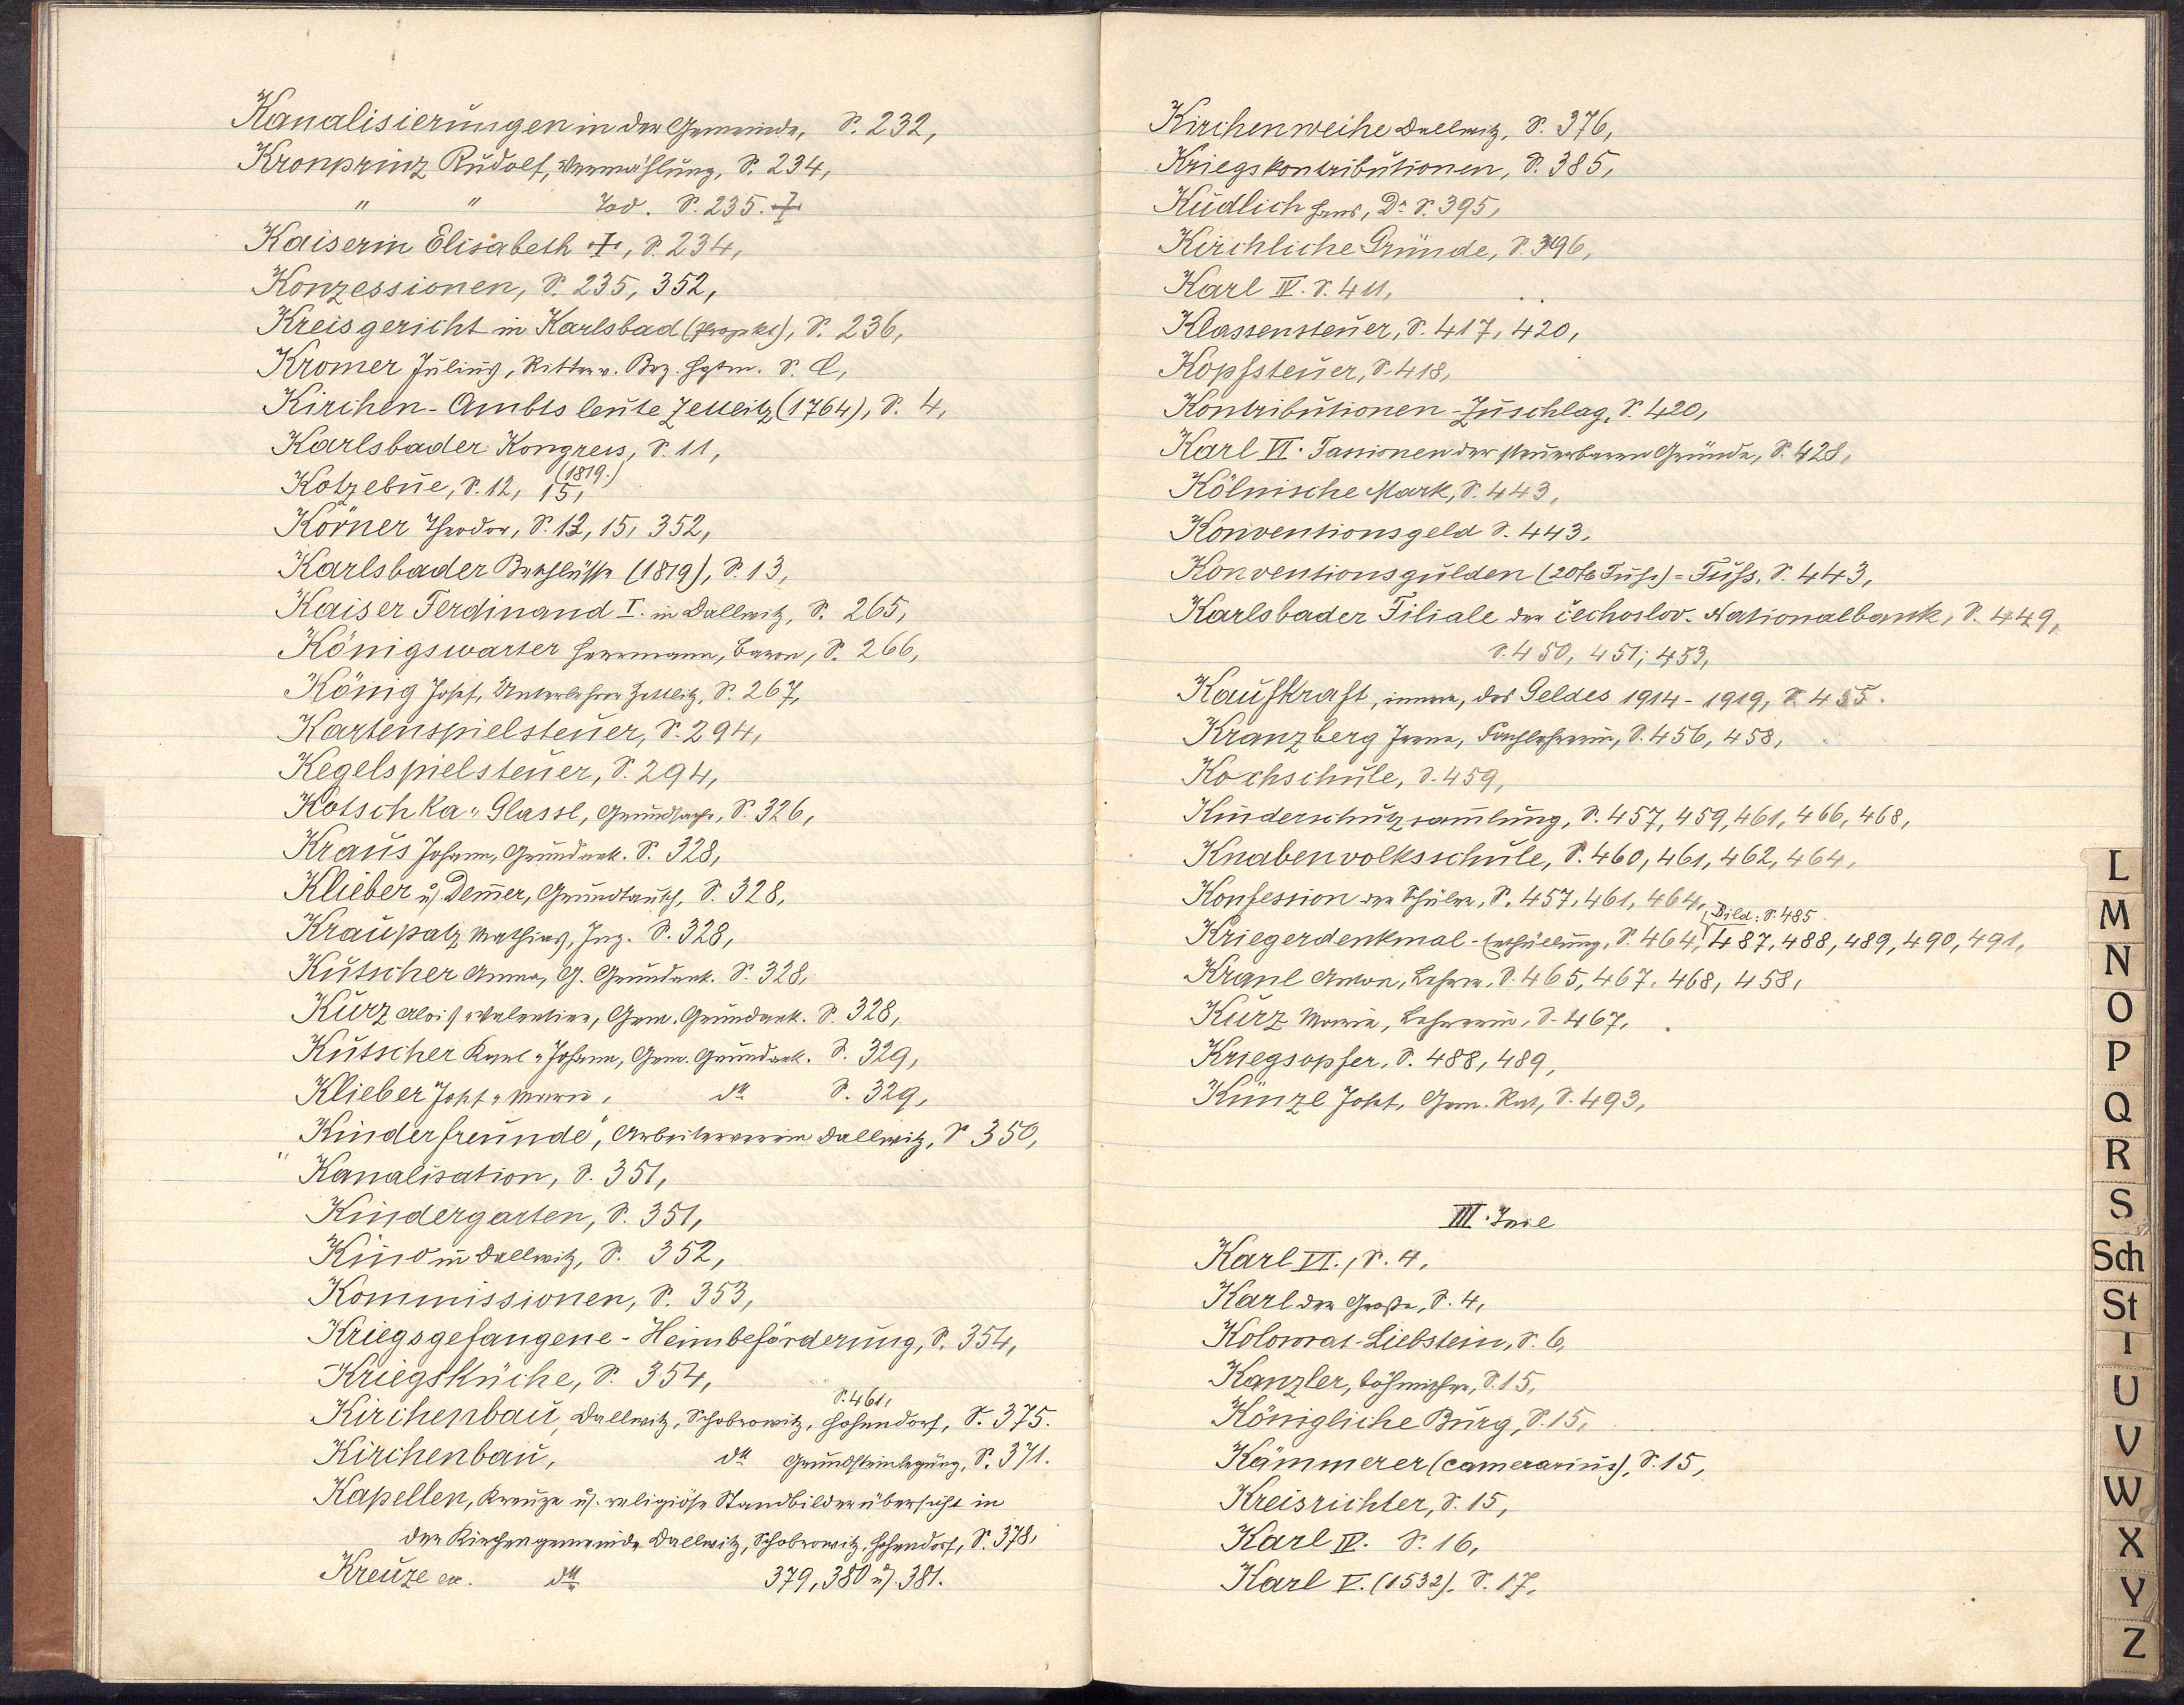 Kanalisierungen in der Gemeinde, S. 232,
Kronprinz Rudolf, Vermählung, S. 234,
" " Tod. S. 235. †
Kaiserin Elisabeth †, S. 234,
Konzessionen, S. 235, 352,
Kreisgericht in Karlsbad (Projekt), S. 236,
Kromer Julius, Ritter v. Bez. Hptm. S.
Kirchen-Ambtsleute Zettlitz (1764), S. 4,
Karlsbader Kongress, S. 11,
(1819.)
Kotzebue, S. 12, 15,
Körner Theodor, S. 12, 15, 352,
Karlsbader Beschlüsse (1819), S. 13,
Kaiser Ferdinand I. in Dallwitz, S. 265,
Königswarter Herrmann, Baron, S. 266,
König Josef, Unterlehrer Zettlitz, S. 267,
Kartenspielsteuer, S. 294,
Kegelspielsteuer, S. 294,
Kotschka " Glassl, Grundsache, S. 326,
Kraus Johann, Grundverk. S. 328,
Klieber u. Dem̄er, Grundtausch, S. 328,
Kraupatz Mathias, Ing. S. 328,
Kutscher Anna, G. Grundverk. S. 328,
Kurz Alois u Valentine, Gem. Grundverk. S. 328,
Kutscher Karl u Johann, Gem. Grundverk. S. 329,
Klieber Josef u Marie, dtt S. 329,
"Kinderfreunde", Arbeiterverein Dallwitz, S 350,
Kanalisation, S. 351,
Kindergarten, S. 351,
Kino in Dallwitz, S. 352,
Kommissionen, S. 353,
Kriegsgefangene-Heimbeförderung, S. 354,
Kriegsküche, S. 354,
S. 461,
Kirchenbau, Dallwitz, Schobrowitz, Hohendorf, S. 375.
Kirchenbau, dtt Grundsteinlegung, S. 371.
Kapellen, Kreuze u. religiöse Standbilder übersicht in
der Kirchengemeinde Dallwitz, Schobrowitz, Hohendorf, S. 378,
Kreuze etc. dtt 379, 380 u. 381.
Kirchenweihe Dallwitz, S. 376,
Kriegskontributionen, S. 385,
Kudlich Hans, Dr. S. 395,
Kirchliche Gründe, S. 396,
Karl IV. S. 411,
Klassensteuer, S. 417, 420,
Kopfsteuer, S. 418,
Kontributionen-Zuschlag, S. 420,
Karl VI. Fassionen der steuerbaren Gründe, S. 428,
Kölnische Mark, S. 443,
Konventionsgeld S. 443,
Konventionsgulden (20te Fuss) = Fuss, S. 443,
Karlsbader Filiale der čechoslov. Nationalbank, S. 449,
S. 450, 451, 453,
Kaufkraft, innere, des Geldes 1914-1919, S. 455.
Kranzberg Irene, Fachlehrerin, S. 456, 458,
Kochschule, S. 459,
Kinderschutzsam̄lung, S. 457, 459, 461, 466, 468,
Knabenvolksschule, S. 460, 461, 462, 464,
Konfession der Schüler, S. 457, 461, 464,
Bild: S. 485
Kriegerdenkmal-Enthüllung, S. 464, 487, 488, 489, 490, 491,
Kranl Anton, Lehrer, S. 465, 467, 468, 458,
Kurz Maria, Lehrerin, S. 467,
Kriegsopfer, S. 488, 489,
Künzl Josef, Gem. Rat, S. 493,
III. Teil
Karl VI., S. 4,
Karl der Große, S. 4,
Kolowrat-Liebstein, S. 6,
Kanzler, böhmischer, S. 15,
Königliche Burg, S. 15,
Kämmerer (camerarius), S. 15,
Kreisrichter, S. 15,
Karl IV. S. 16,
Karl V. (1532). S. 17,
L
M
N
O
P
Q
R
S
Sch
St
T
U
V
W
X
Y
Z